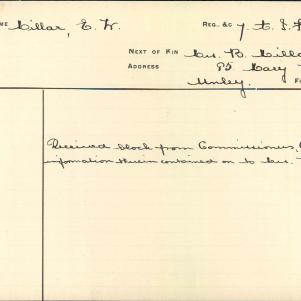 ME Millar, E. W. REG. &C
NEXT OF KIN Mrs. B. Millar
ADDRESS 85 Mary
Unley.
Received block from Commissioners,
information therein contained on to Mrs.